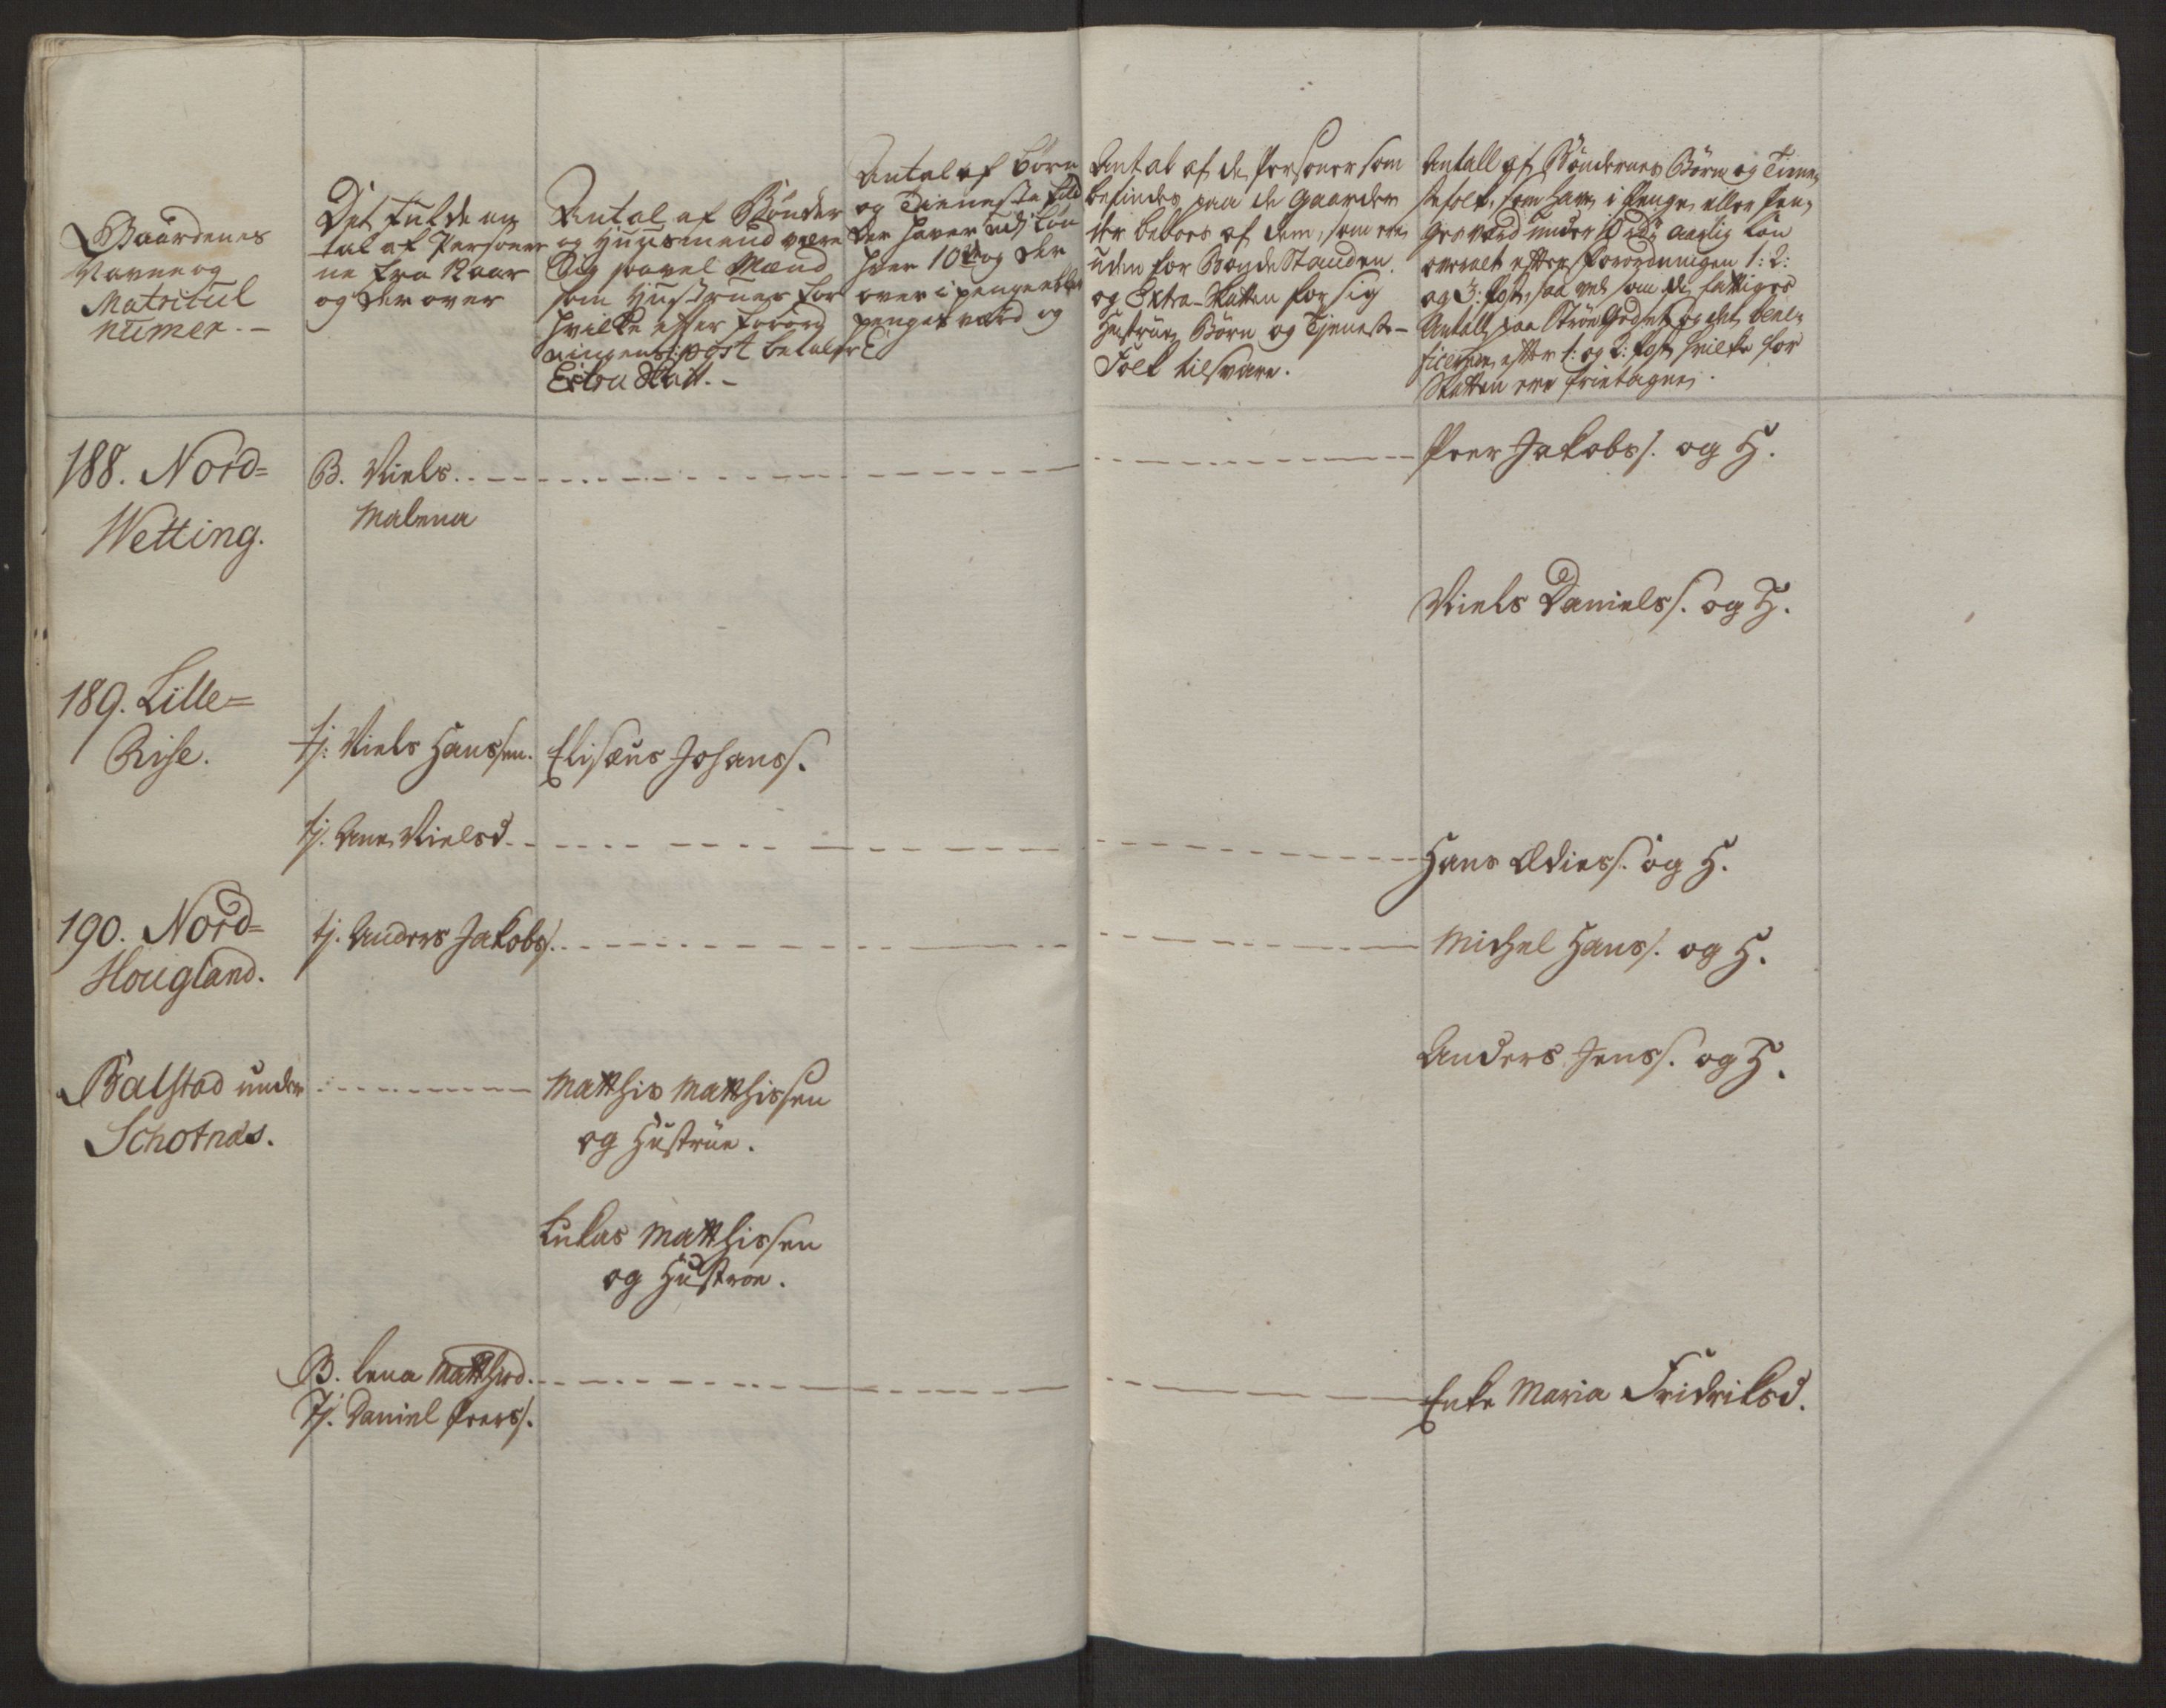 Gaardenes
Navne og
Matricul
numer. -
Det fulde an
tal af Persone
ne fra 12 aar
og der over
Antal af Bönder
og Huusmend være
Sig saavel Mænd
som Hustruer for
hvilke efter Forord
ningens 1: post betales
Extra Skatt. -
Antal af börn
og Tieneste folk
der haver udj Løn
hver 10 rd og der
over i penge eller
penges værd og
Antal af de Personer som
befindes paa de Gaarder
der beboes af dem, som ere
uden for Bonde Standen
og Extra-Skatten for sig
Hustrue, Börn og Tjeneste-
Folk tilsvare.
Antall af Böndernes Börn og Tiene,
stefolk, som have i Penge eller Pen,
ges værd under 10 rd aarlig Løn
overalt efter Forordningen 1: 2:
og 3: Post, saa vel som de fattiges
Antall paa Strøe Godset og det bene,
ficerede efter 1: og 2: Post hvilke for
Skatten ere frietagne.
188. Nord=
Wetting.
B. Niels.
Malena
Peer Jakobs/. og H.
Niels Daniels/. og H.
189. Lille=
Rise.
tj: Niels Hanssen.
Elisæus Johans/.
tj. Ane Nielsd.
Hans Ædies/. og H.
190. Nord=
Hougland.
tj. Anders Jakobs/.
Michel Hans/. og H.
Anders Jens/. og H.
Balstad under
Schotnæs.
Matthis Matthissen
og Hustrue.
Lukas Matthissen
og Hustroe.
B. Lena Matthisd.
Tj. Daniel Peers/.
Enke Maria Fridriksd.